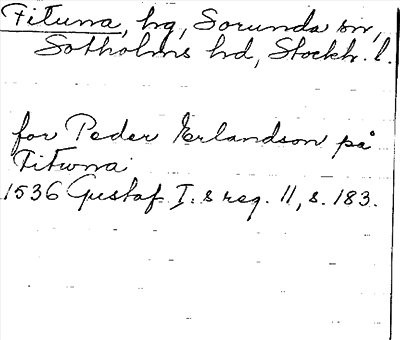 Fituna, hg, Sorunda sn,
Sotholms hd, Stockh. l.
for Peder Erlandson på
Fitwna
1536 Gustaf I. s reg. 11, s. 183.